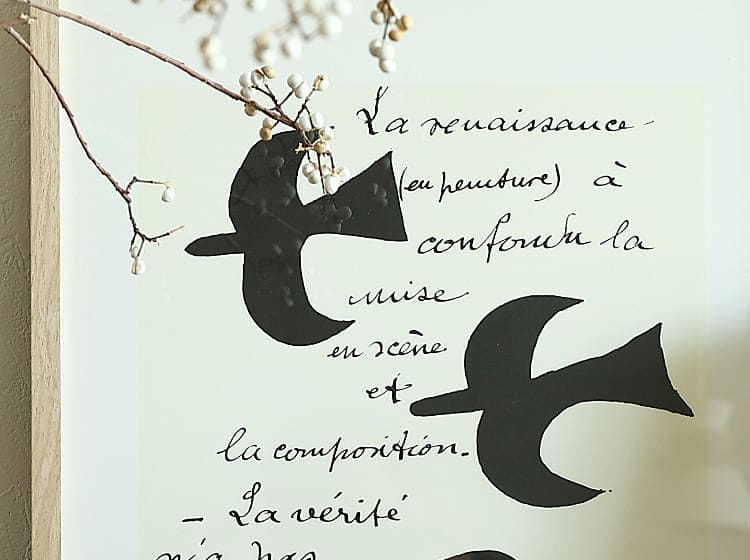 La renaissance
(en peinture) à
confondu la
mise
en scène
et
la composition.
– La vérité
n'a pas